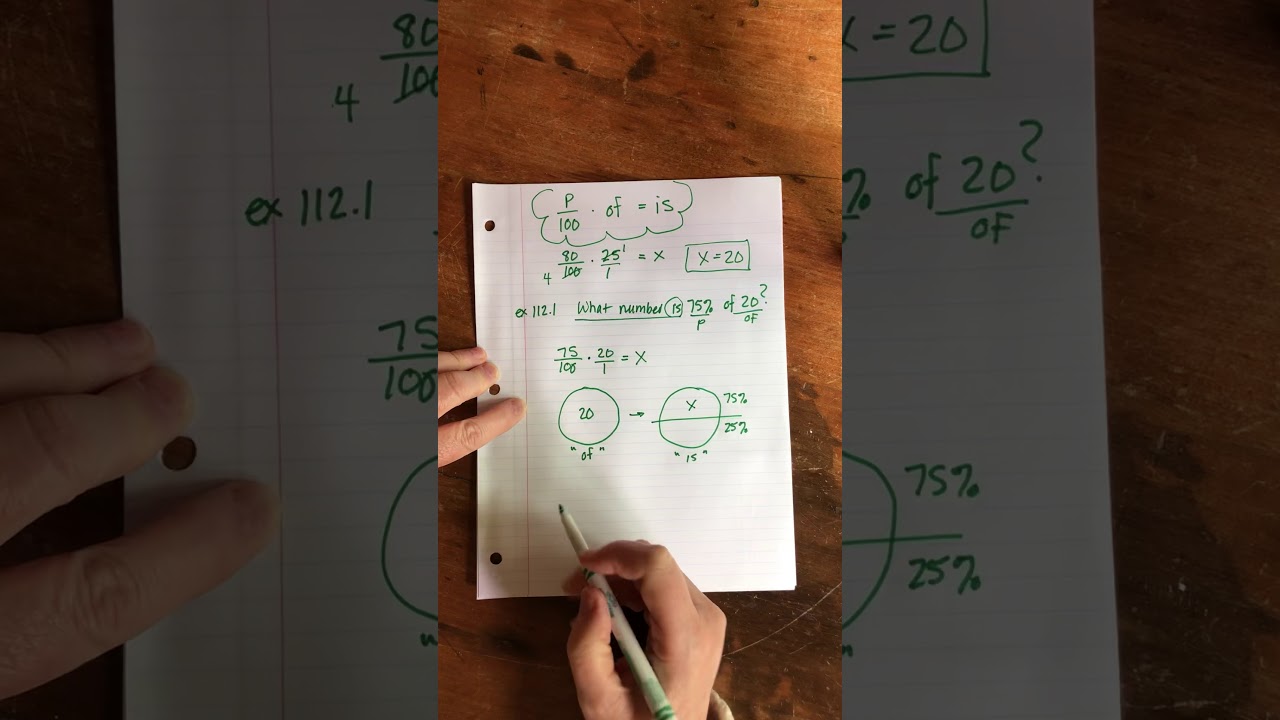 P/100 · of = is
80/100 · 25/1 = x   x = 20
4   1
ex 112.1 What number is 75% of 20?
P   of
75/100 · 20/1 = x
20 → x 75%
25%
"of" "is"